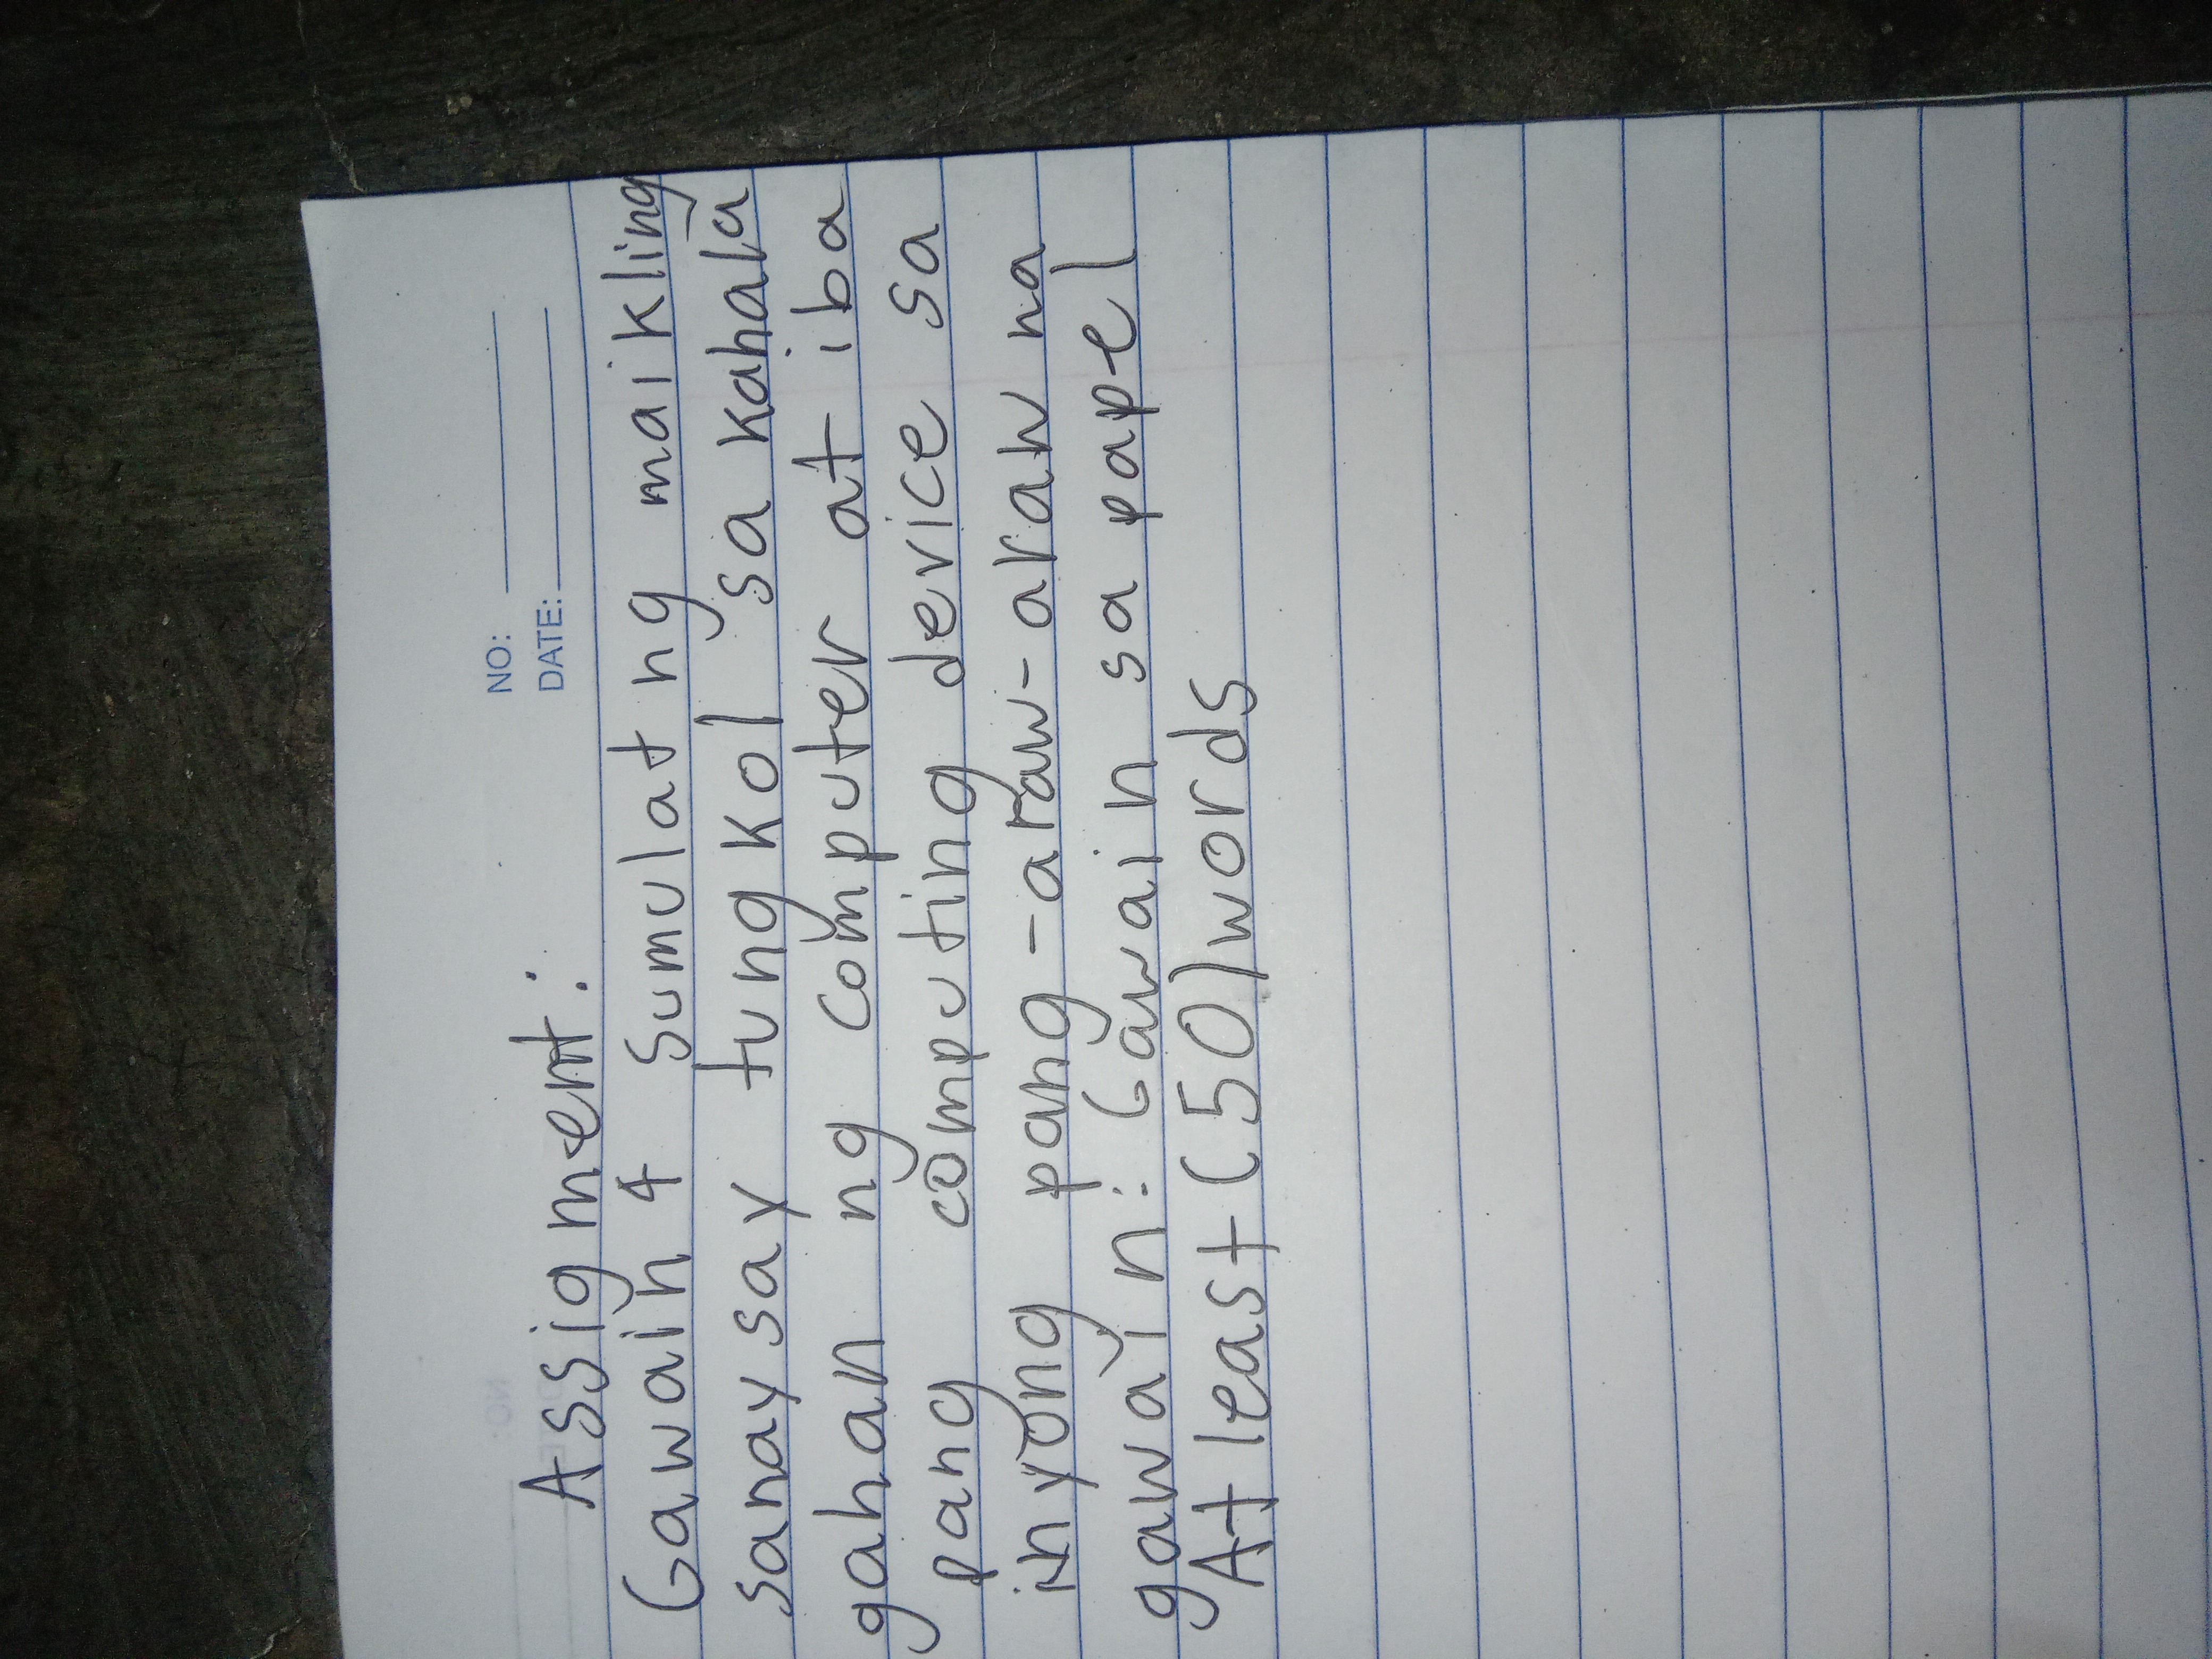 NO:
DATE:
Assigment:
Gawain 4 Sumulat ng maikling
sanaysay tungkol sa kahala
gahan ng computer at iba
pang computing device sa
inyong pang-araw-araw na
gawain: Gawain sa papel
At least (50) words